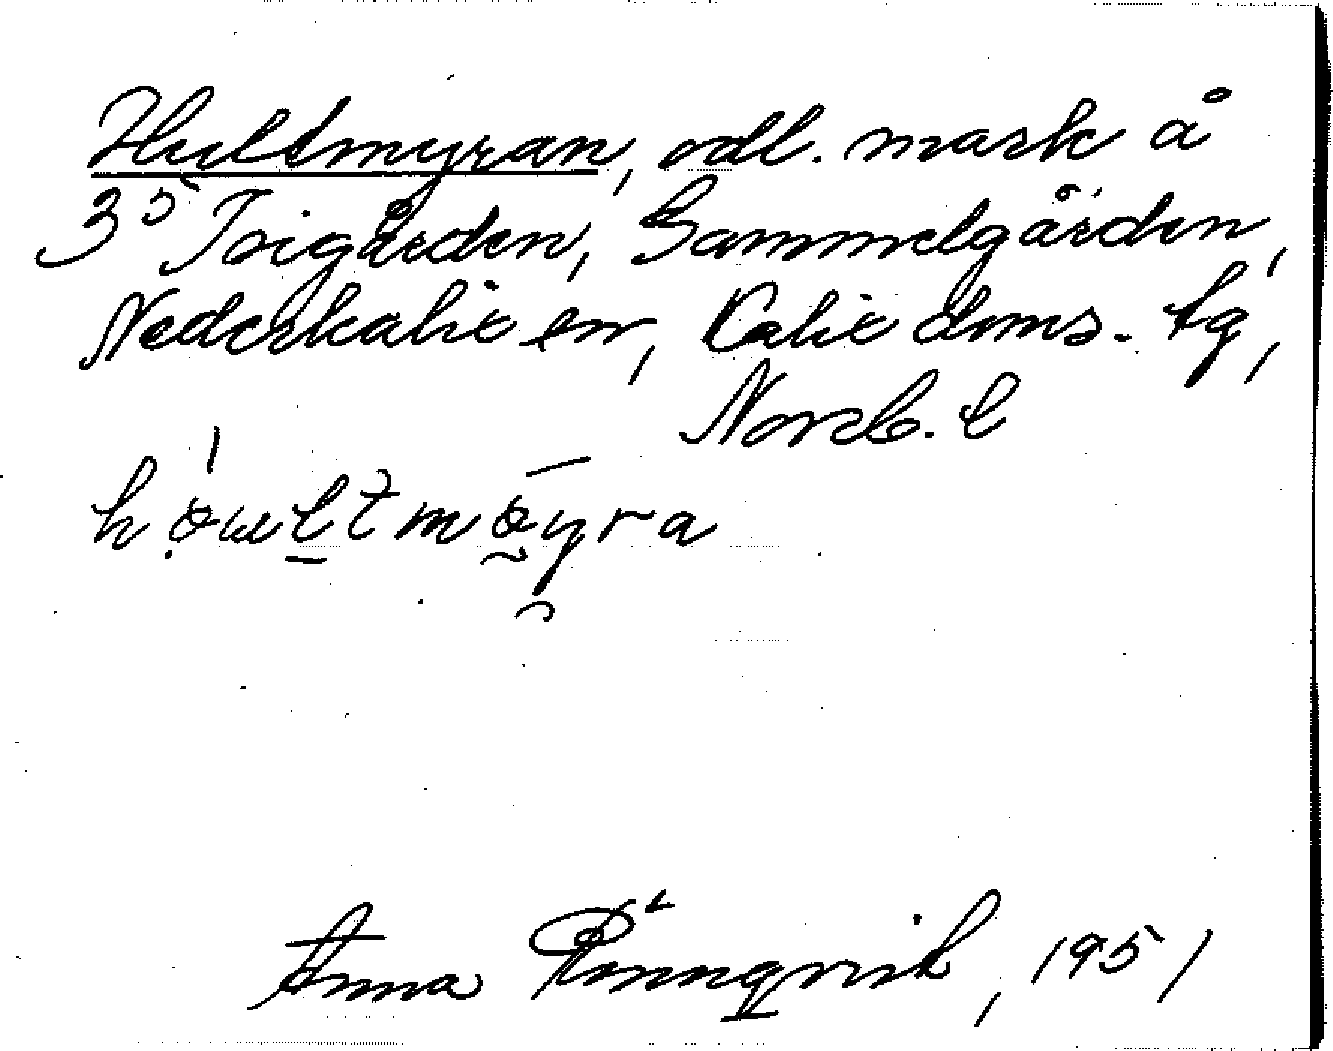 Hultmyran, odl. mark å
3⁵ Toigården, Gammelgården,
Nederkalix sn, Kalix doms. tg,
Norrb. l
höultmöyra
Anna Rönnqvist, 1951